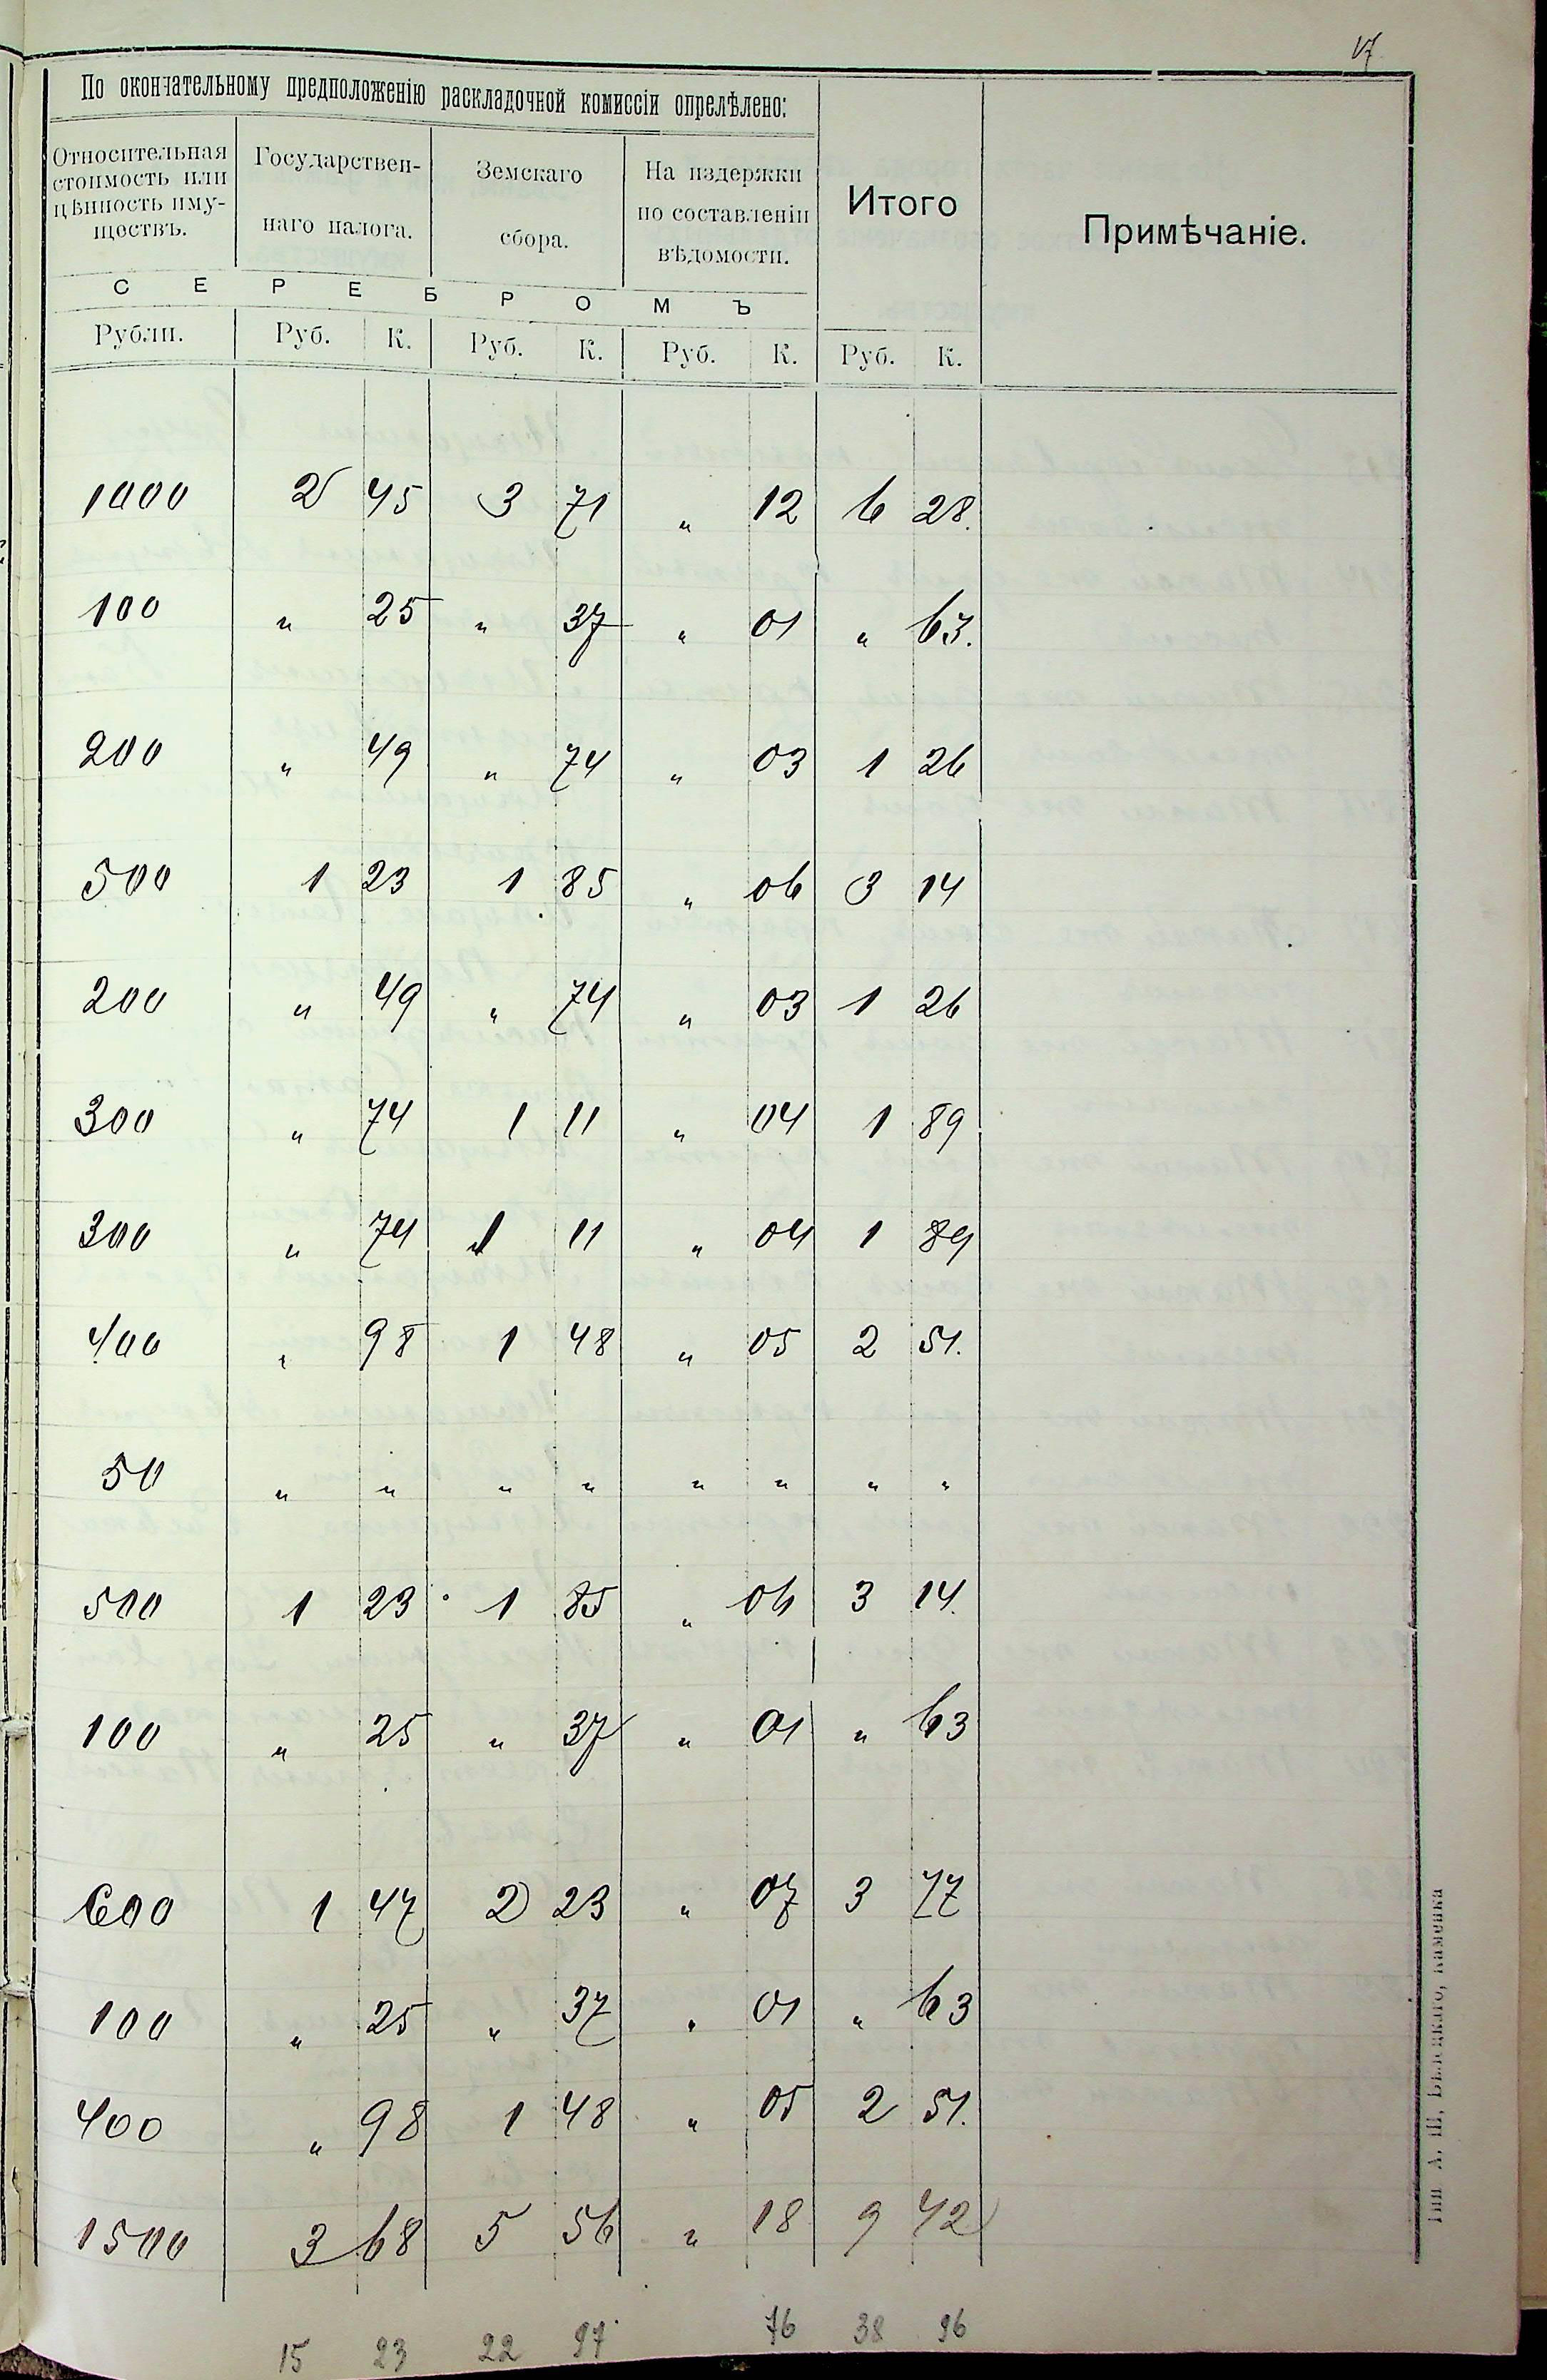 17
По окончательному предположенію раскладочной комиссіи опредѣлено:
Относительная стоимость или цѣнность иму- ществъ.
Государствен- наго налога.
Земскаго сбора.
На издержки по составленіи вѣдомости.
Итого
Примѣчаніе.
С Е Р Е Б Р О М Ъ
Рубли. Руб. К. Руб. К. Руб. К. Руб. К.
1000 2 45 3 71 " 12 6 28.
100 " 25 " 37 " 01 " 63.
200 " 49 " 74 " 03 1 26
500 1 23 1 85 " 06 3 14
200 " 49 " 74 " 03 1 26
300 " 74 1 11 " 04 1 89
300 " 74 1 11 " 04 1 89
400 " 98 1 48 " 05 2 51.
50 " " " " " " " "
500 1 23 1 85 " 06 3 14.
100 " 25 " 37 " 01 " 63
600 1 47 2 23 " 07 3 77
100 " 25 " 37 " 01 " 63
400 " 98 1 48 " 05 2 51.
1500 3 68 5 56 " 18 9 42
15 23 22 97 76 38 96
Тип. А. Ш. Бѣлоцкаго, Каменка